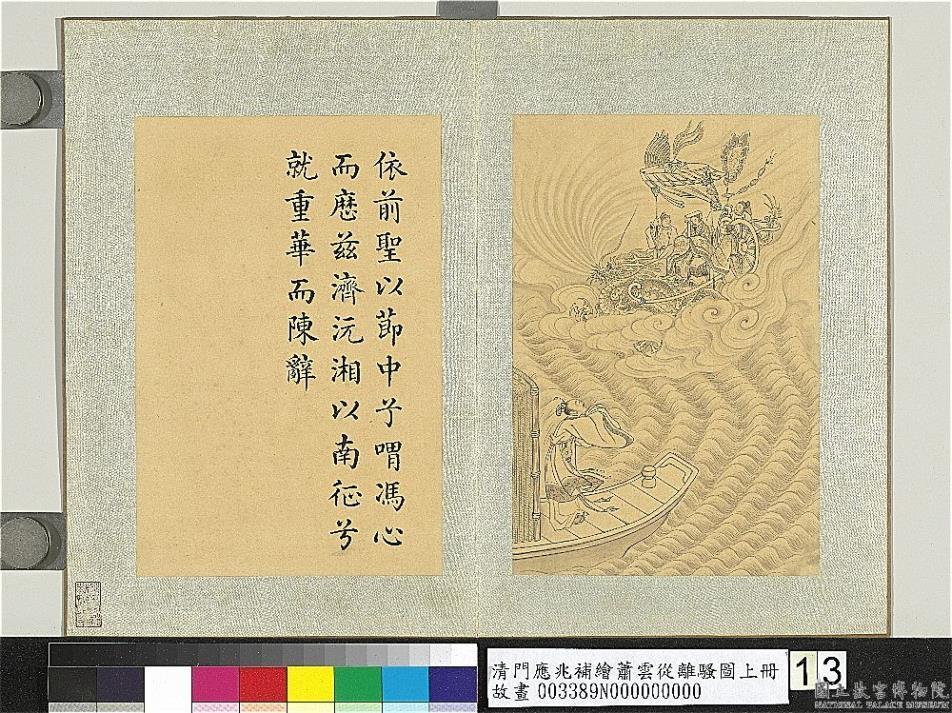 依前聖以節中兮喟馮心
而歷茲濟沅湘以南征兮
就重華而陳辭
清門應兆補繪蕭雲從離騷圖上冊
故畫 003389N000000000
13
國立故宮博物院
NATIONAL PALACE MUSEUM